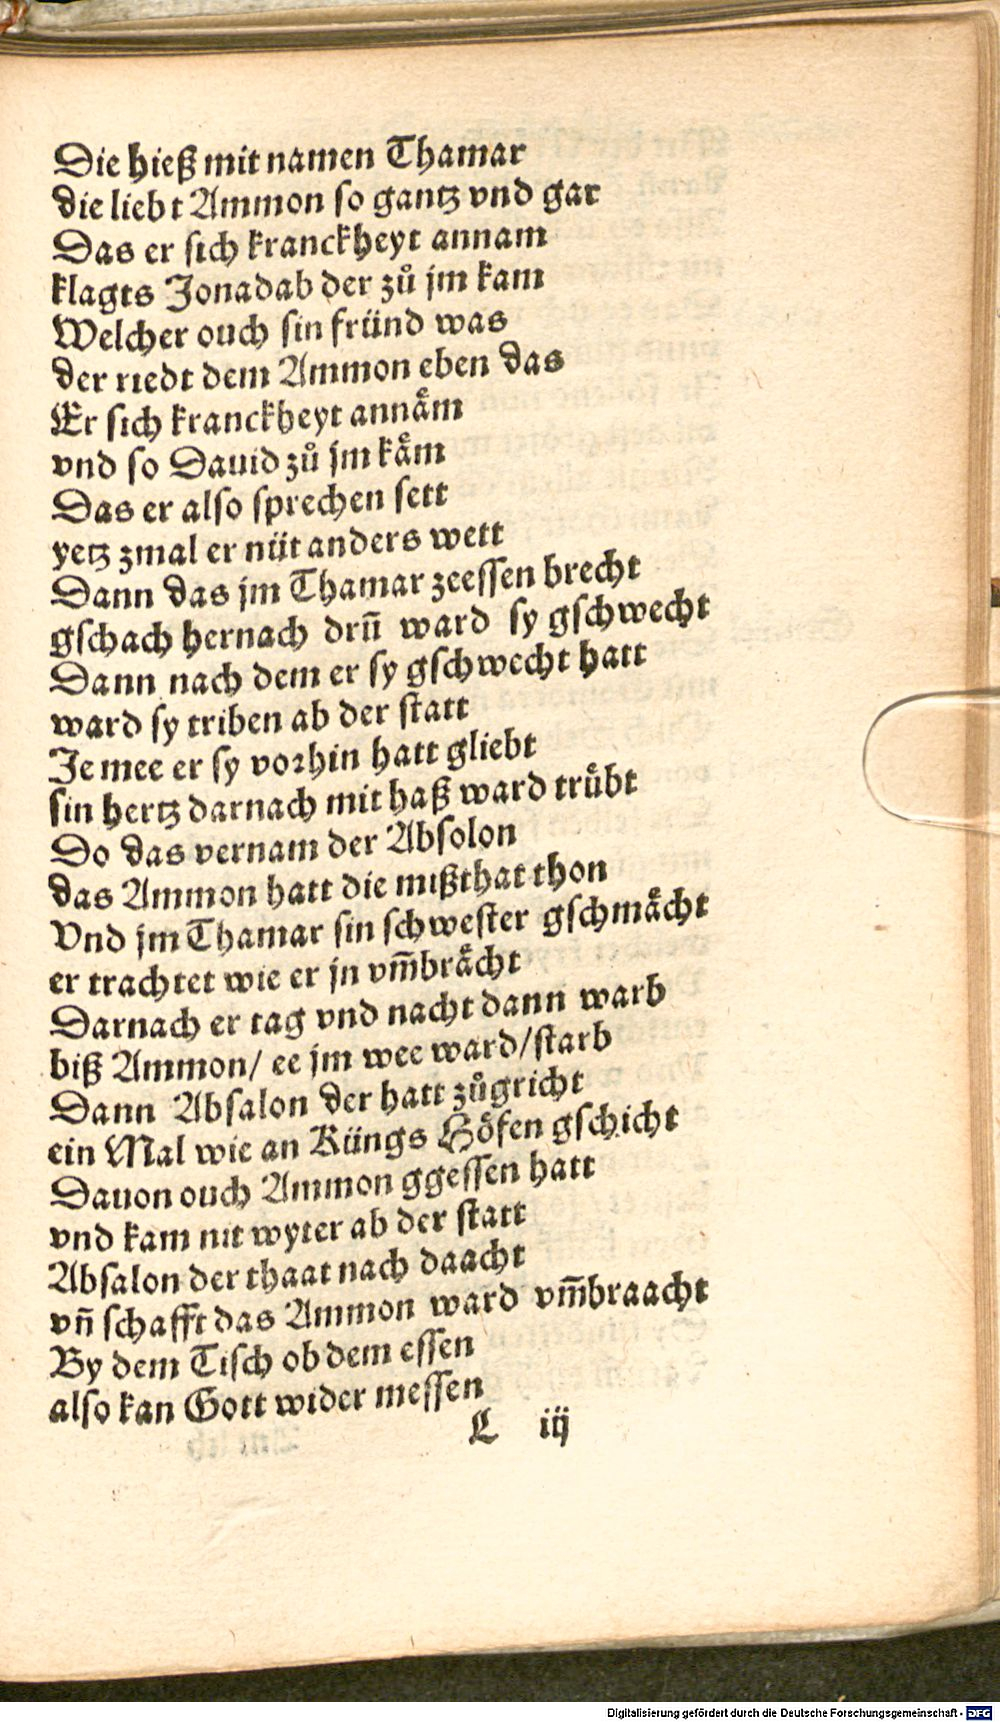 Die hieß mit namen Thamar
die liebt Ammon so gantz vnd gar
Das er sich kranckheyt annam
klagts Jonadab der zů jm kam
Welcher ouch sin fründ was
der riedt dem Ammon eben das
Er sich kranckheyt annäm
vnd so Dauid zů jm käm
Das er also sprechen sett
yetz zmal er nüt anders wett
Dann das jm Thamar zeessen brecht
gschach hernach drũ ward sy gschwecht
Dann nach dem er sy gschwecht hatt
ward sy triben ab der statt
Je mee er sy vorhin hatt gliebt
sin hertz darnach mit haß ward trübt
Do das vernam der Absolon
das Ammon hatt die mißthat thon
Vnd jm Thamar sin schwester gschmächt
er trachtet wie er jn vm̃brächt
Darnach er tag vnd nacht dann warb
biß Ammon/ ee jm wee ward/starb
Dann Absalon der hatt zůgricht
ein Mal wie an Küngs Höfen gschicht
Dauon ouch Ammon ggessen hatt
vnd kam nit wyter ab der statt
Absalon der thaat nach daacht
vñ schafft das Ammon ward vm̃braacht
By dem Tisch ob dem essen
also kan Gott wider messen
L iij
Digitalisierung gefördert durch die Deutsche Forschungsgemeinschaft - DFG